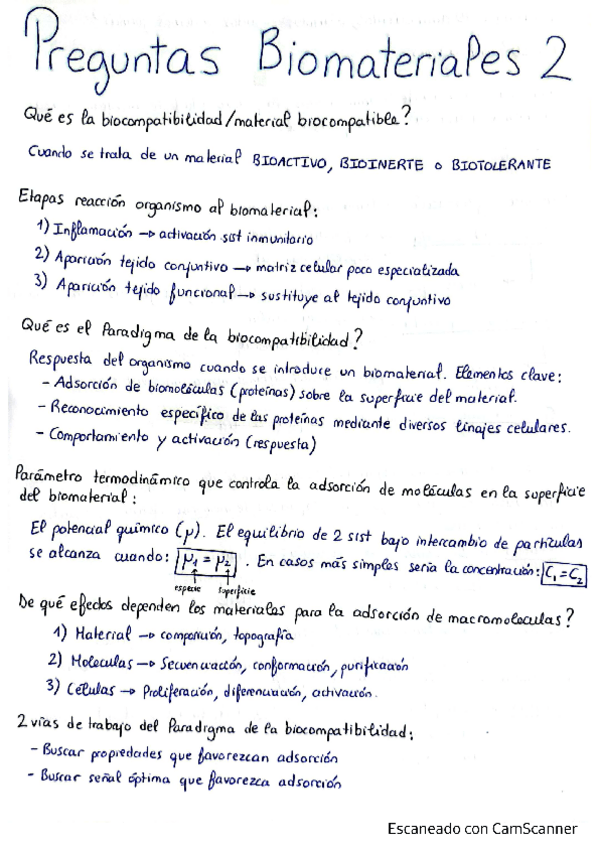 Preguntas Biomateriales 2
Qué es la biocompatibilidad/material biocompatible?
Cuando se trata de un material BIOACTIVO, BIOINERTE o BIOTOLERANTE
Etapas reacción organismo al biomaterial:
1) Inflamación → activación sist inmunitario
2) Aparición tejido conjuntivo → matriz celular poco especializada
3) Aparición tejido funcional → sustituye al tejido conjuntivo
Qué es el Paradigma de la biocompatibilidad?
Respuesta del organismo cuando se introduce un biomaterial. Elementos clave:
- Adsorción de biomoléculas (proteínas) sobre la superficie del material.
- Reconocimiento específico de las proteínas mediante diversos linajes celulares.
- Comportamiento y activación (respuesta)
Parámetro termodinámico que controla la adsorción de moléculas en la superficie
del biomaterial:
El potencial químico (μ). El equilibrio de 2 sist bajo intercambio de partículas
se alcanza cuando: μ1 = μ2. En casos más simples seria la concentración: C1 = C2
especie superficie
De qué efectos dependen los materiales para la adsorción de macromoleculas?
1) Material → composición, topografía
2) Moleculas → Secuenciación, conformación, purificación
3) Células → Proliferación, diferenciación, activación.
2 vías de trabajo del Paradigma de la biocompatibilidad:
- Buscar propiedades que favorezcan adsorción
- Buscar señal óptima que favorezca adsorción
Escaneado con CamScanner